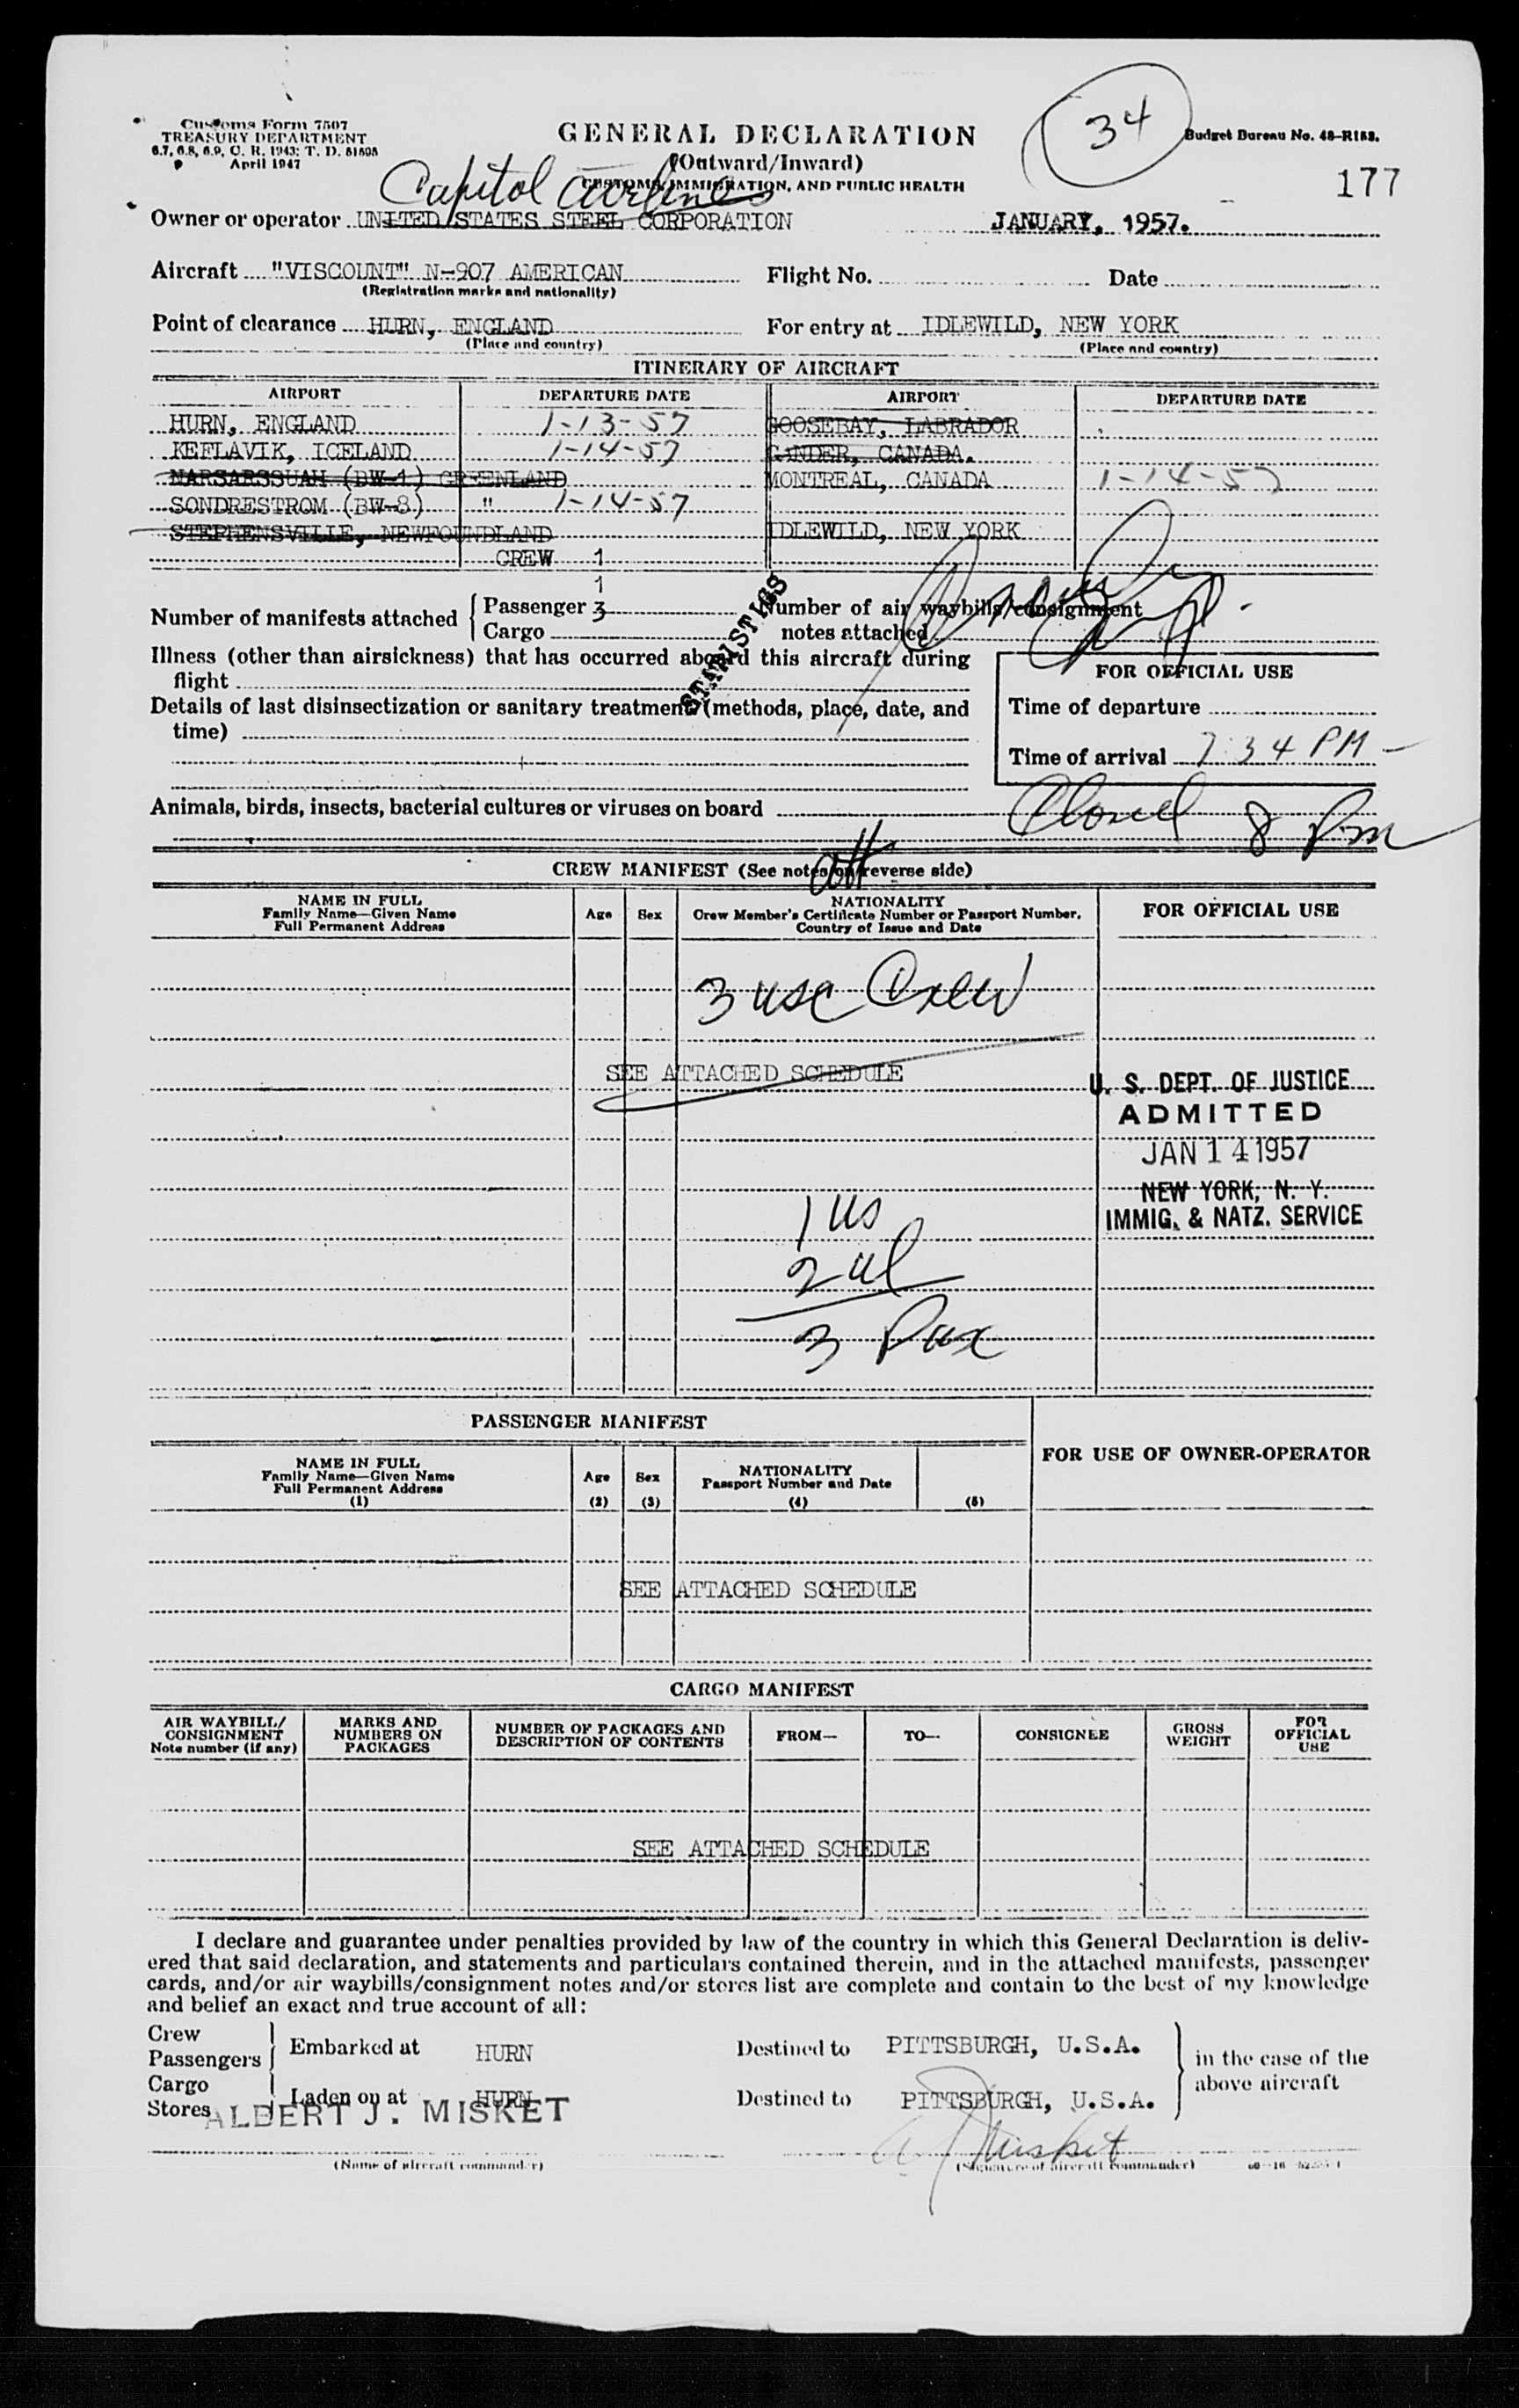 Customs Form 7507
TREASURY DEPARTMENT
6.7, 6.8, 6.9, C. R. 1943; T. D. 51505
April 1947
GENERAL DECLARATION
(Outward/Inward)
CUSTOMS, IMMIGRATION, AND PUBLIC HEALTH
34
Budget Bureau No. 48-R153.
177
Capitol Airlines
Owner or operator UNITED STATES STEEL CORPORATION JANUARY, 1957.
Aircraft "VISCOUNT" N-907 AMERICAN Flight No. Date
(Registration marks and nationality)
Point of clearance HURN, ENGLAND For entry at IDLEWILD, NEW YORK
(Place and country) (Place and country)
ITINERARY OF AIRCRAFT
AIRPORT DEPARTURE DATE AIRPORT DEPARTURE DATE
HURN, ENGLAND 1-13-57 GOOSEBAY, LABRADOR
KEFLAVIK, ICELAND 1-14-57 GANDER, CANADA.
NARSARSSUAH (BW-1) GREENLAND MONTREAL, CANADA 1-14-57
SONDRESTROM (BW-8) " 1-14-57
STEPHENSVILLE, NEWFOUNDLAND IDLEWILD, NEW YORK
CREW 1
1
Number of manifests attached Passenger 3 Number of air waybills/consignment
Cargo notes attached
STATISTICS
Illness (other than airsickness) that has occurred aboard this aircraft during
flight
FOR OFFICIAL USE
Details of last disinsectization or sanitary treatment (methods, place, date, and
time)
Time of departure
Time of arrival 7:34 PM
Animals, birds, insects, bacterial cultures or viruses on board
8 Pm
CREW MANIFEST (See notes on reverse side)
att
NAME IN FULL
Family Name—Given Name
Full Permanent Address
Age Sex
NATIONALITY
Crew Member's Certificate Number or Passport Number,
Country of Issue and Date
FOR OFFICIAL USE
3 usc Crew
SEE ATTACHED SCHEDULE
U. S. DEPT. OF JUSTICE
ADMITTED
JAN 14 1957
NEW YORK, N. Y.
IMMIG. & NATZ. SERVICE
1 us
2 al
3 Pax
PASSENGER MANIFEST
FOR USE OF OWNER-OPERATOR
NAME IN FULL
Family Name—Given Name
Full Permanent Address
(1)
Age
(2)
Sex
(3)
NATIONALITY
Passport Number and Date
(4)
(5)
SEE ATTACHED SCHEDULE
CARGO MANIFEST
AIR WAYBILL/
CONSIGNMENT
Note number (if any)
MARKS AND
NUMBERS ON
PACKAGES
NUMBER OF PACKAGES AND
DESCRIPTION OF CONTENTS
FROM— TO— CONSIGNEE
GROSS
WEIGHT
FOR
OFFICIAL
USE
SEE ATTACHED SCHEDULE
I declare and guarantee under penalties provided by law of the country in which this General Declaration is deliv-
ered that said declaration, and statements and particulars contained therein, and in the attached manifests, passenger
cards, and/or air waybills/consignment notes and/or stores list are complete and contain to the best of my knowledge
and belief an exact and true account of all:
Crew
Passengers Embarked at HURN Destined to PITTSBURGH, U.S.A. in the case of the
above aircraft
Cargo
Stores Laden on at HURN Destined to PITTSBURGH, U.S.A.
ALBERT J. MISKET
A J Misket
(Name of aircraft commander) (Signature of aircraft commander)